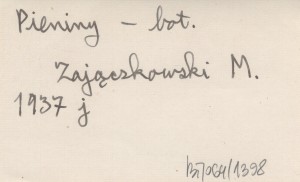 Pieniny – bot.
Zajączkowski M.
1937 j
B/064/1398